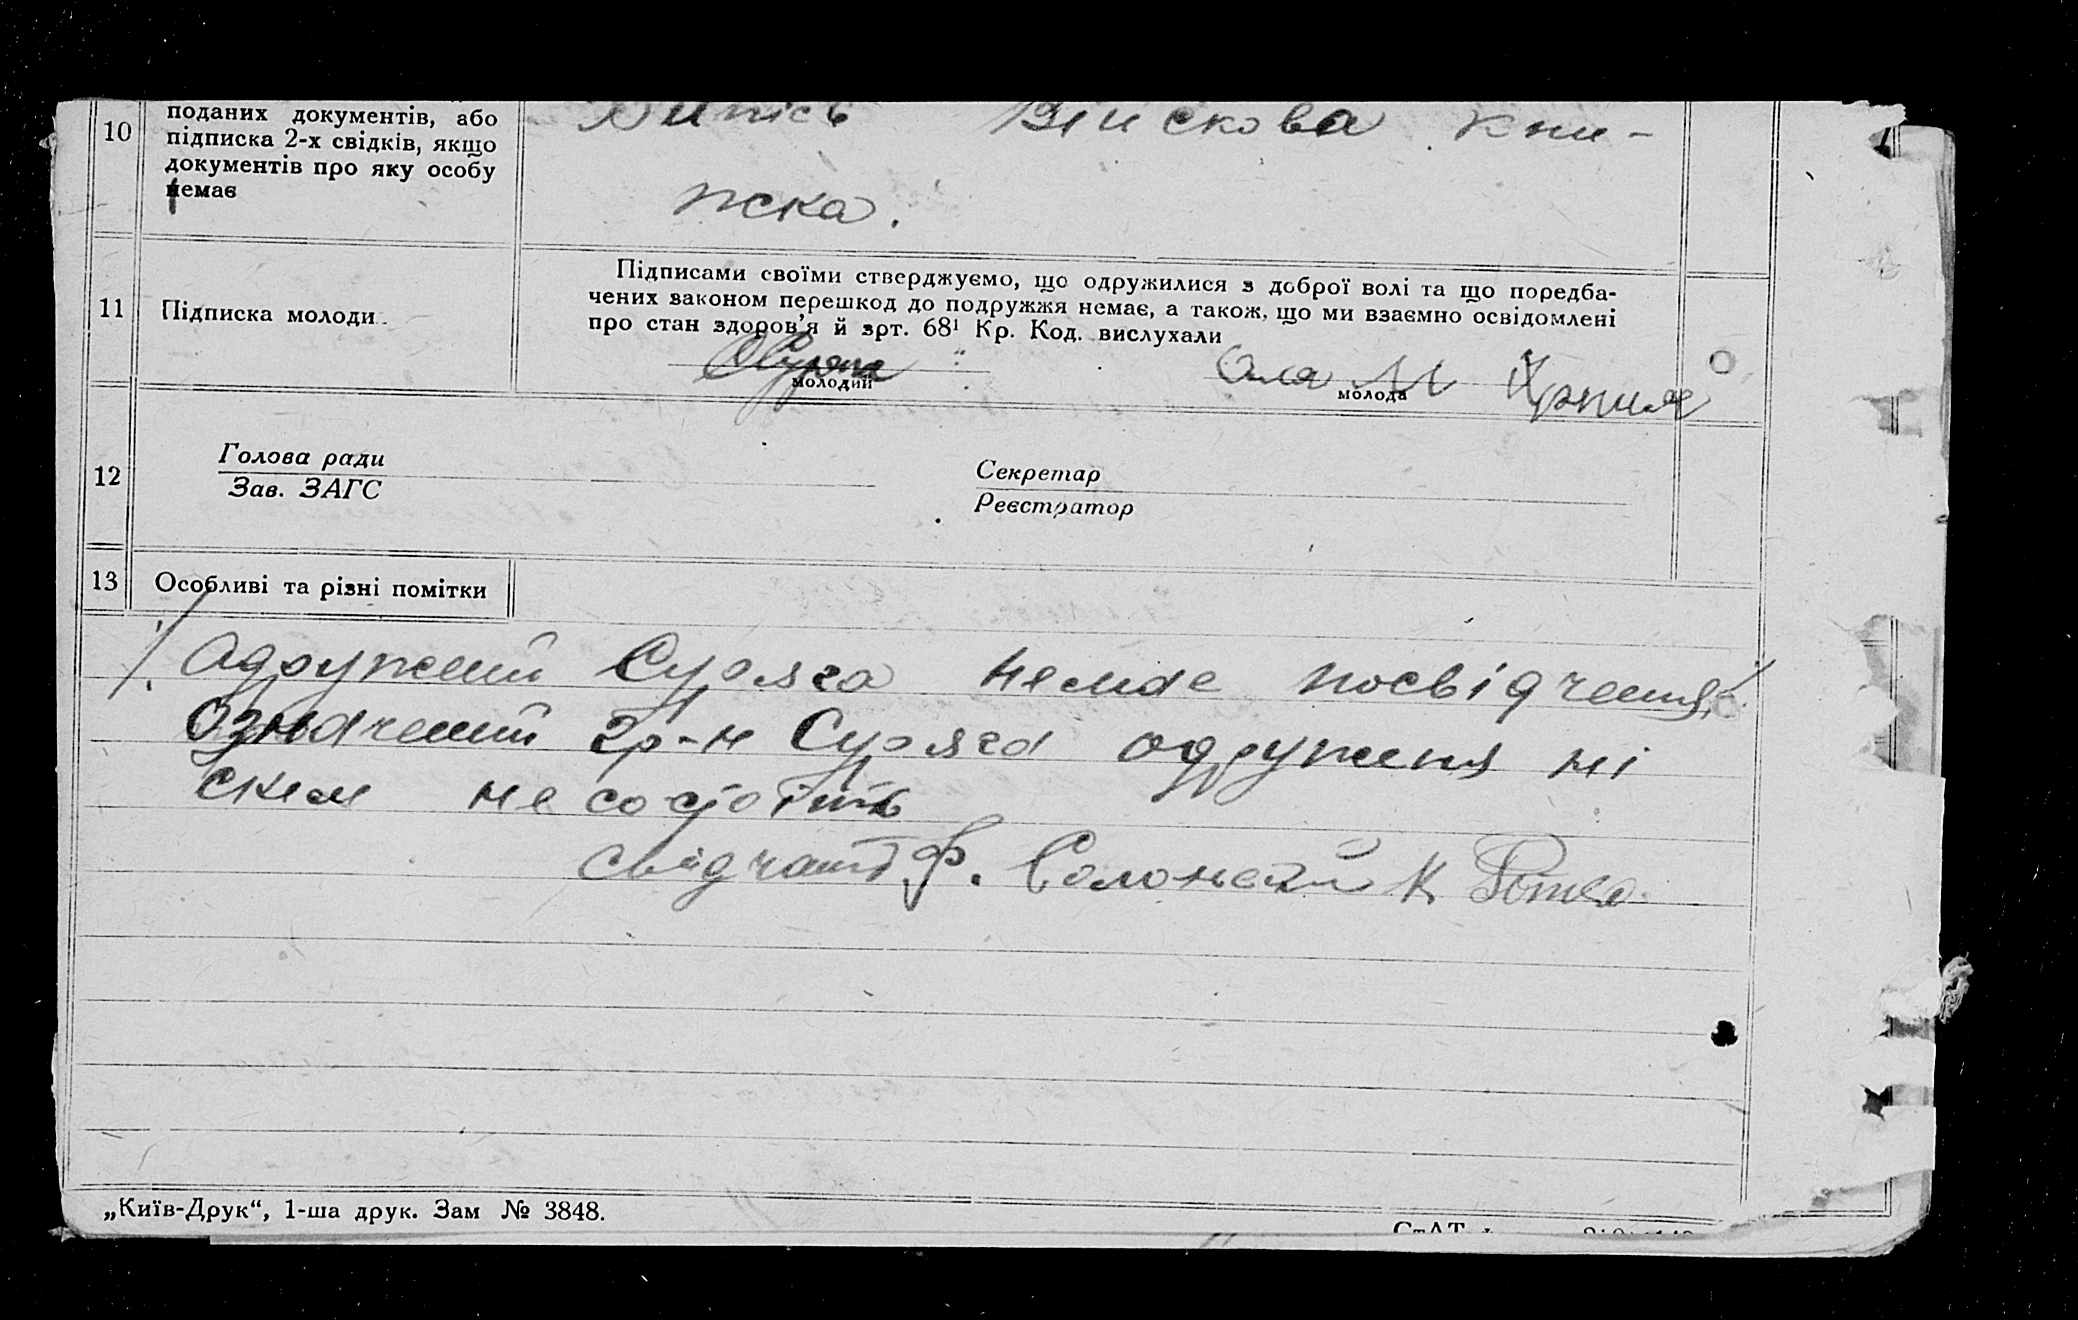 10 поданих документів, або
підписка 2-х свідків, якщо
документів про яку особу
немає
Випісь Війскова кни-
жска.
11 Підписка молоди
Підписами своїми стверджуємо, що одружилися з доброї волі та що поредба-
чених законом перешкод до подружжя немає, а також, що ми взаємно освідомлені
про стан здоров'я й зрт. 68¹ Кр. Код. вислухали
молодий
молода
12 Голова ради
Зав. ЗАГС
Секретар
Реєстратор
13 Особливі та різні помітки
Одружений Суряга немає посвідчення
Означений гр-н Суряга одруженя ні
ским не состоїть
свідчат Ф. Солонский К
„Київ-Друк“, 1-ша друк. Зам № 3848.